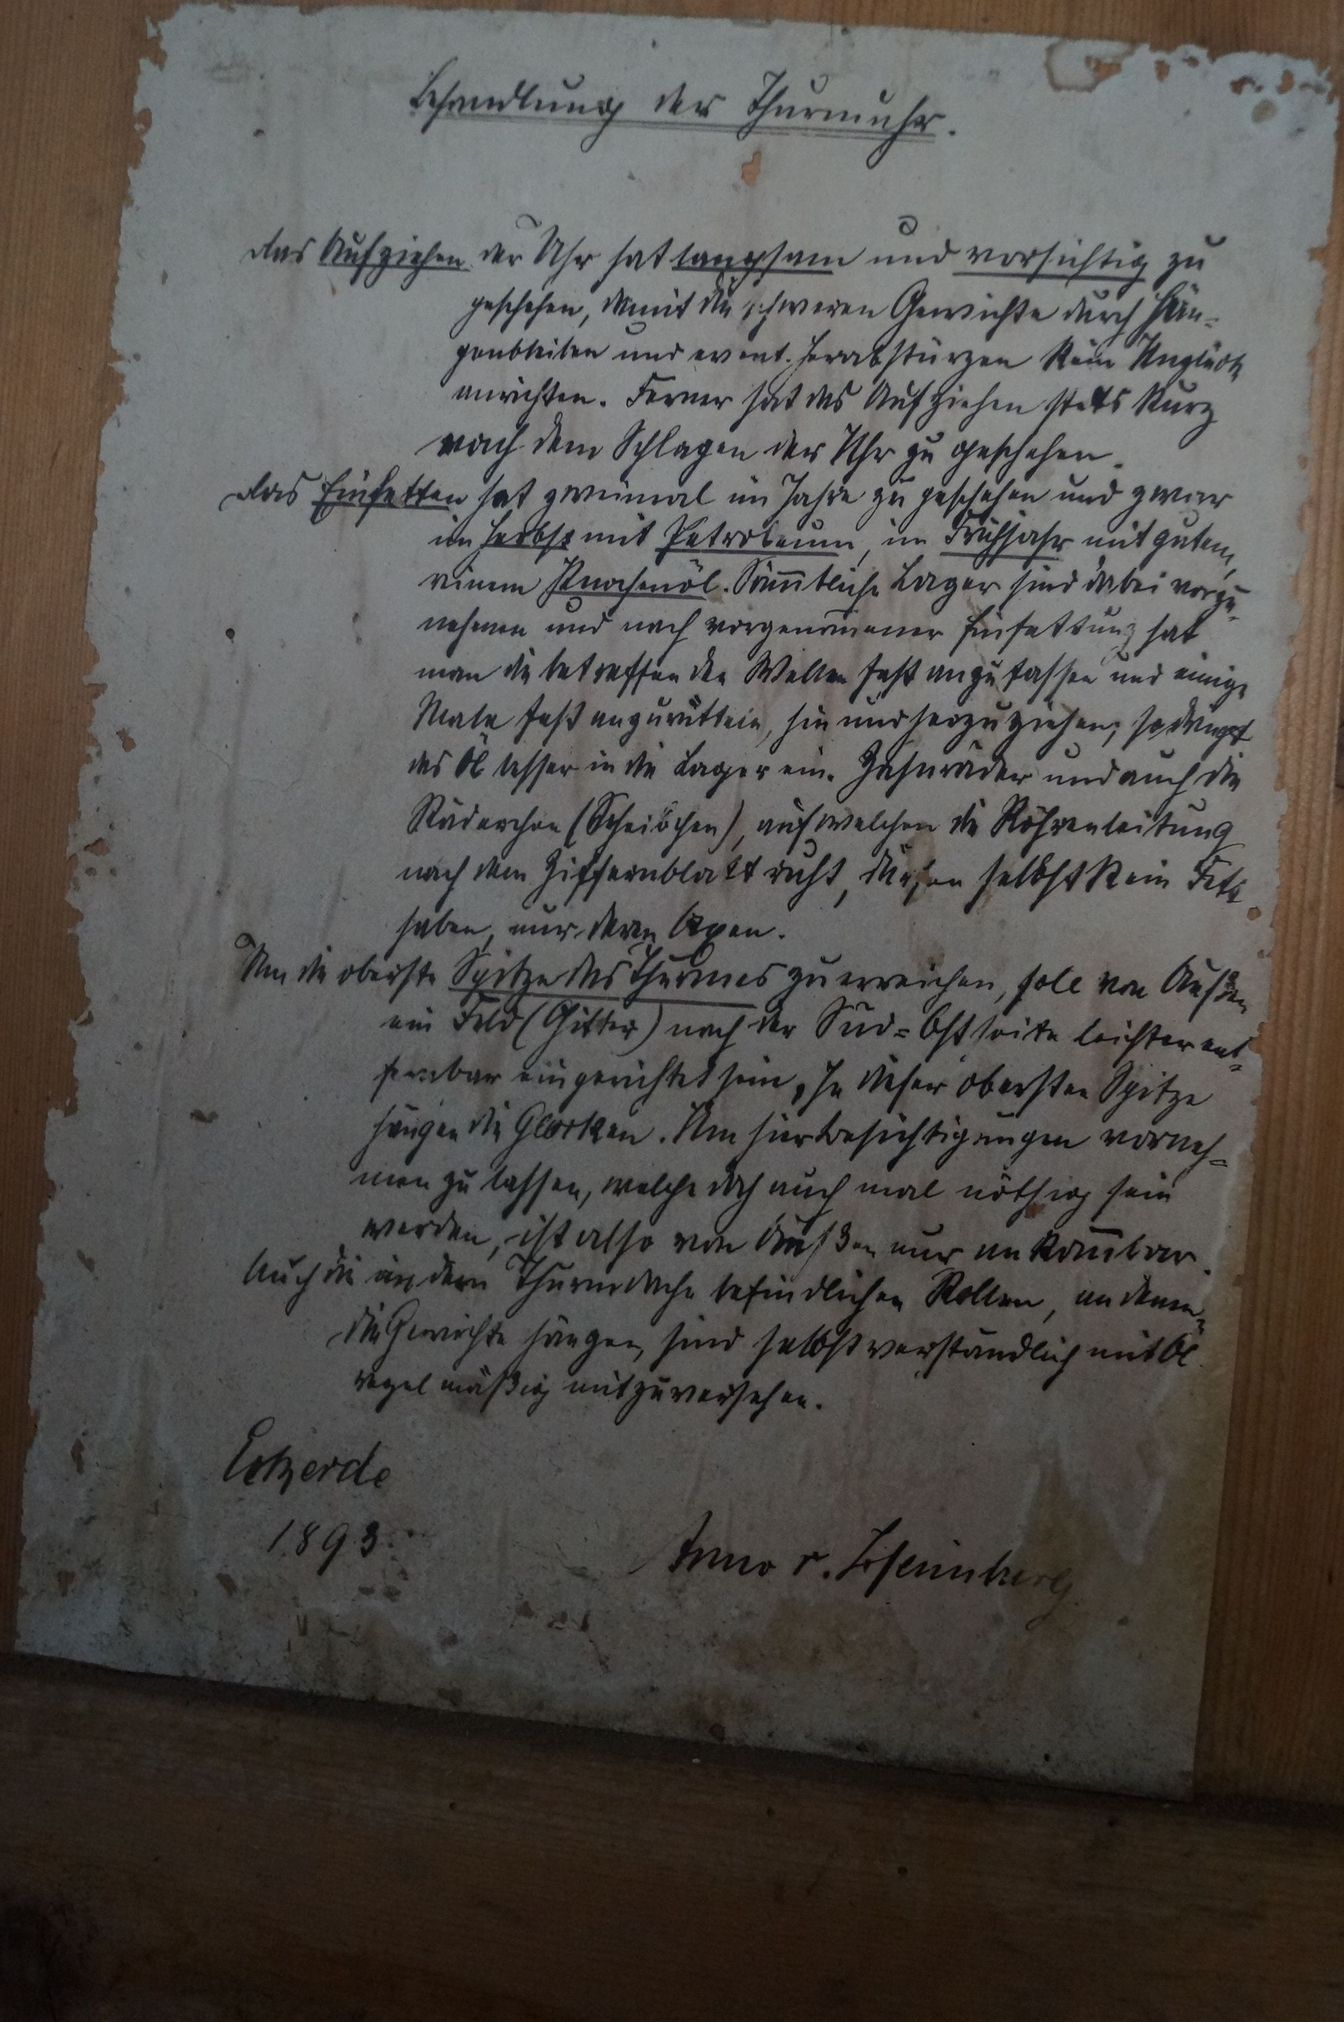 Behandlung der Thurmuhr.
Das Aufziehen der Uhr hat langsam und vorsichtig zu
geschehen, damit die schweren Gewichte durch Hän-
genbleiben und event. Herabstürzen kein Unglück
anrichten. Ferner hat das Aufziehen stets kurz
nach dem Schlagen der Uhr zu geschehen.
Das Einfetten hat zweimal im Jahre zu geschehen und zwar
im Herbst mit Petroleum, im Frühjahr mit gutem,
reinem Knochenöl. Sämtliche Lager sind dabei vorzu-
nehmen und nach vorgenommener Einfettung hat
man die betreffenden Wellen fest anzufassen und einige
Male fest anzurütteln, hin und herzuziehen; so dringt
das Öl besser in die Lager ein. Zahnräder und auch die
Räderchen (Scheibchen), auf welchen die Röhrenleitung
nach dem Ziffernblatt ruht, dürfen selbst kein Fett
haben, nur deren Axen.
Um die oberste Spitze des Thurmes zu erreichen, soll von Außen
ein Feld (Gitter) nach der Süd-Ostseite leichter ent-
fernbar eingerichtet sein. In dieser obersten Spitze
hängen die Glocken. Um hier Besichtigungen vorneh-
men zu lassen, welche doch auch mal nöthig sein
werden, ist also von Außen nur ankommbar.
Auch die in dem Thurmdache befindlichen Rollen, an denen
die Gewichte hängen, sind selbstverständlich mit Öl
regelmäßig mitzuversehen.
Eckerde
1893.
v.